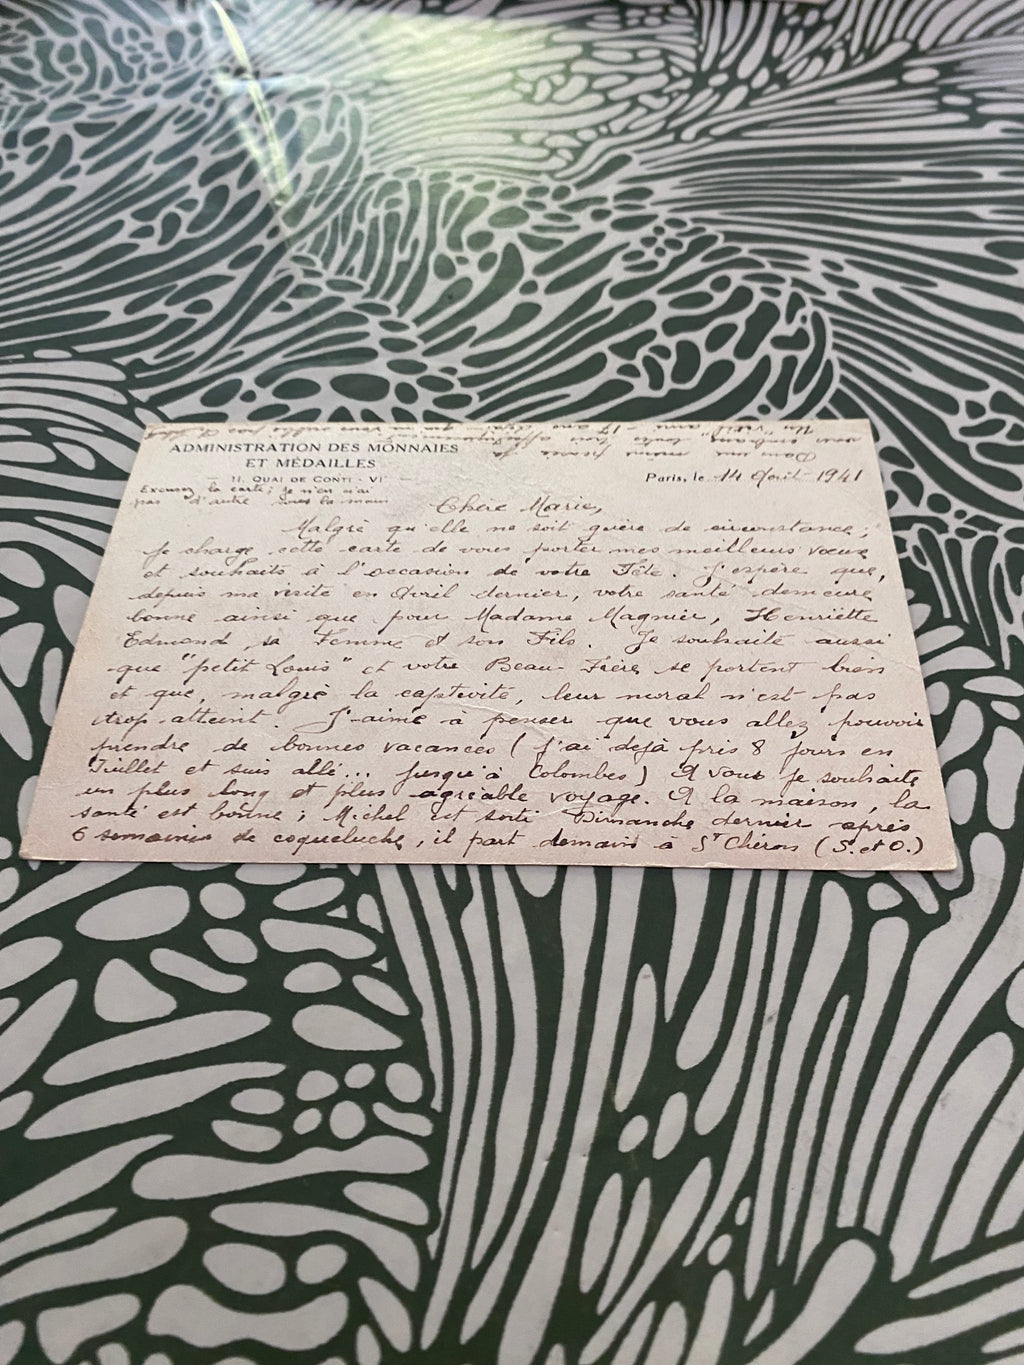 ADMINISTRATION DES MONNAIES
ET MÉDAILLES
11, QUAI DE CONTI - VIᵉ
Paris, le 14 Août 1941
Excusez la carte ; je n'en n'ai
pas d'autre sous la main
Chère Marie,
Malgré qu'elle ne soit guère de circonstance ;
je charge cette carte de vous porter mes meilleurs vœux
et souhaits à l'occasion de votre Fête. J'espère que,
depuis ma visite en Avril dernier, votre santé demeure
bonne ainsi que pour Madame Magnier, Henriette
Edmond, sa Femme et son Fils. Je souhaite aussi
que "petit Louis" et votre Beau-Frère se portent bien
et que, malgré la captivité, leur moral n'est pas
trop atteint. J'aime à penser que vous allez pouvoir
prendre de bonnes vacances (j'ai déjà pris 8 jours en
Juillet et suis allé... jusqu'à Colombes) A vous je souhaite
un plus long et plus agréable voyage. A la maison, la
santé est bonne ; Michel est sorti Dimanche dernier après
6 semaines de coqueluche, il part demain à Sᵗ Chéron (S. et O.)
Dans une même pensée je
vous embrasse toutes très affectueusement
Un "vieil" ami - 17 ans déjà - qui ne vous oublie pas